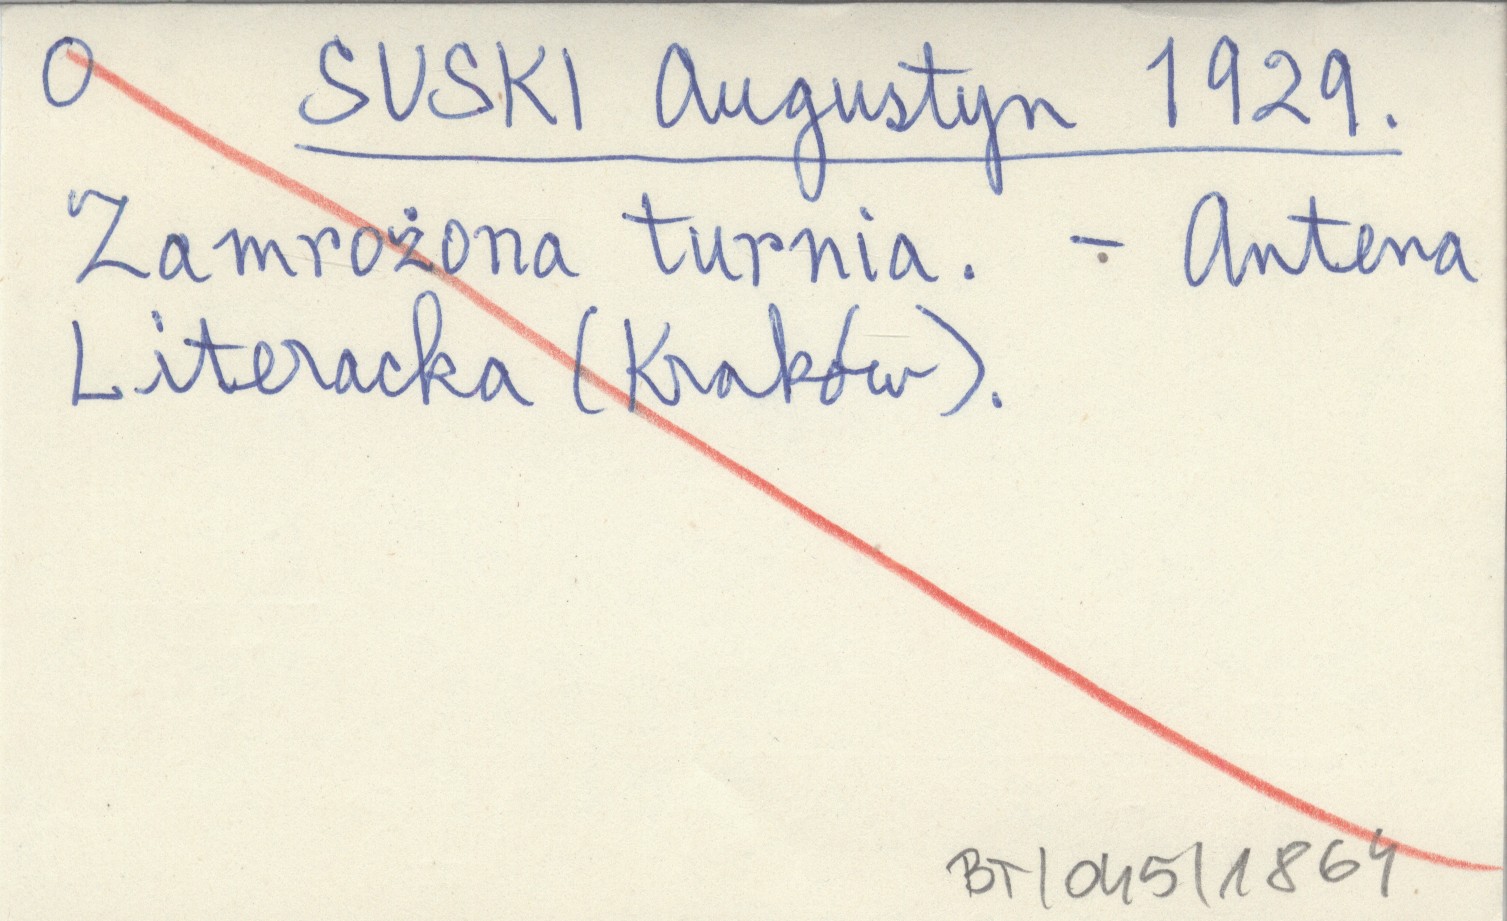 O SUSKI Augustyn 1929.
Zamrożona turnia. - Antena
Literacka (Kraków).
BT/045/1864